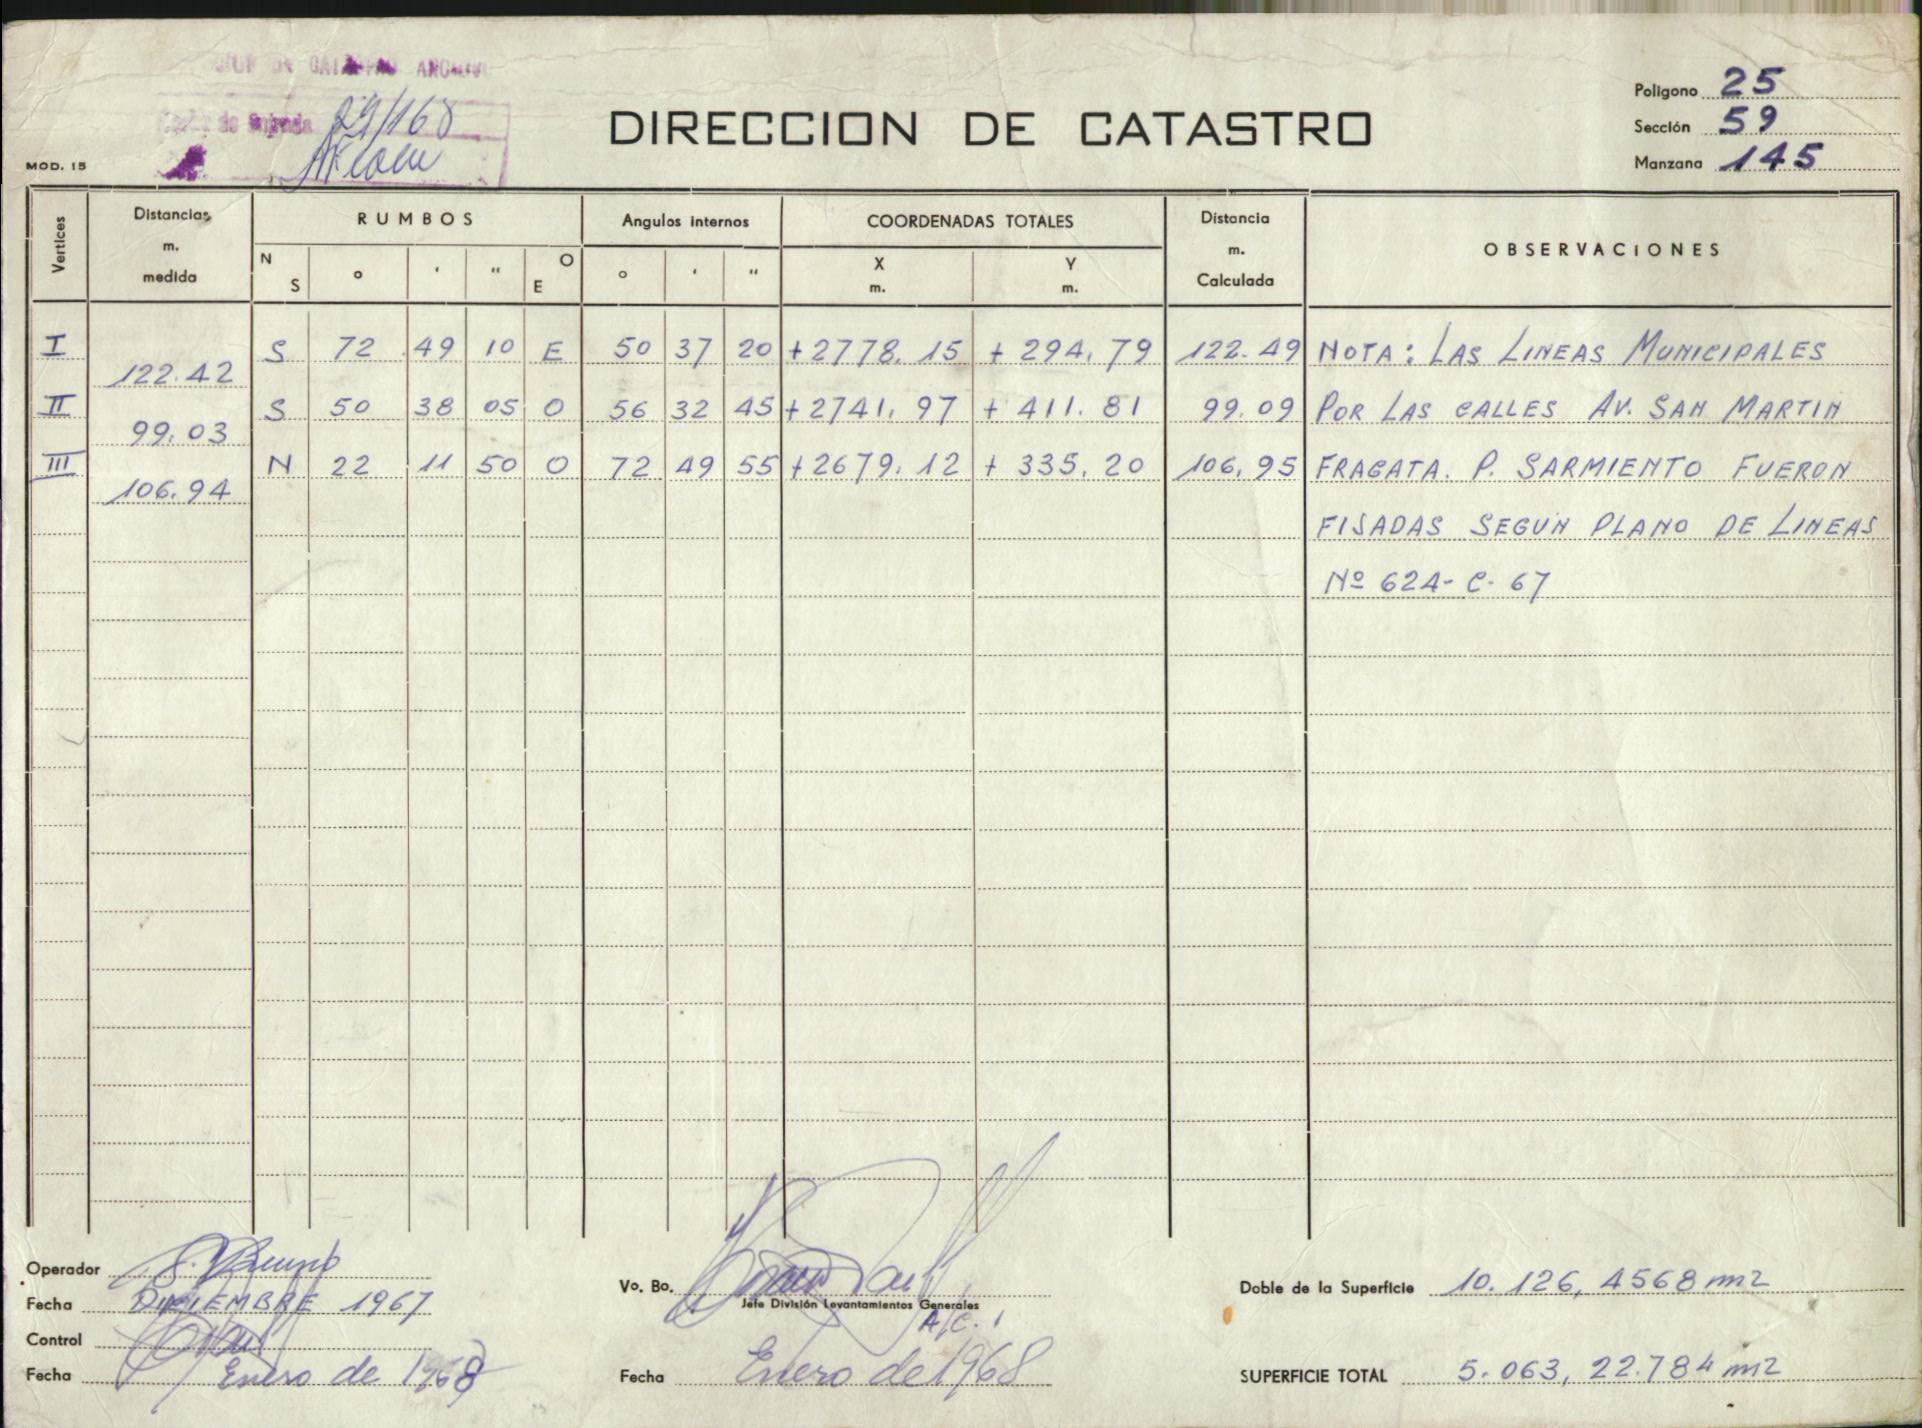 CATASTRO
29/168
DIRECCION DE CATASTRO
Poligono 25
Sección 59
Manzana 145
MOD. 15
Vertices
Distancias m. medida
RUMBOS
Angulos internos
COORDENADAS TOTALES
Distancia m. Calculada
OBSERVACIONES
N S ° ' " O E ° ' " X m. Y m.
I S 72 49 10 E 50 37 20 +2778.15 + 294,79 122.49 NOTA: LAS LINEAS MUNICIPALES
122.42
II S 50 38 05 O 56 32 45 +2741,97 + 411.81 99.09 POR LAS CALLES AV. SAN MARTIN
99.03
III N 22 11 50 O 72 49 55 +2679.12 + 335.20 106,95 FRAGATA. P. SARMIENTO FUERON
106.94
FIJADAS SEGUN PLANO DE LINEAS
Nº 624-C-67
Operador
Fecha DICIEMBRE 1967
Control
Fecha Enero de 1968
Vo. Bo.
Jefe División Levantamientos Generales
A/C.
Fecha Enero de 1968
Doble de la Superficie 10.126,4568 m2
SUPERFICIE TOTAL 5.063,22.784 m2